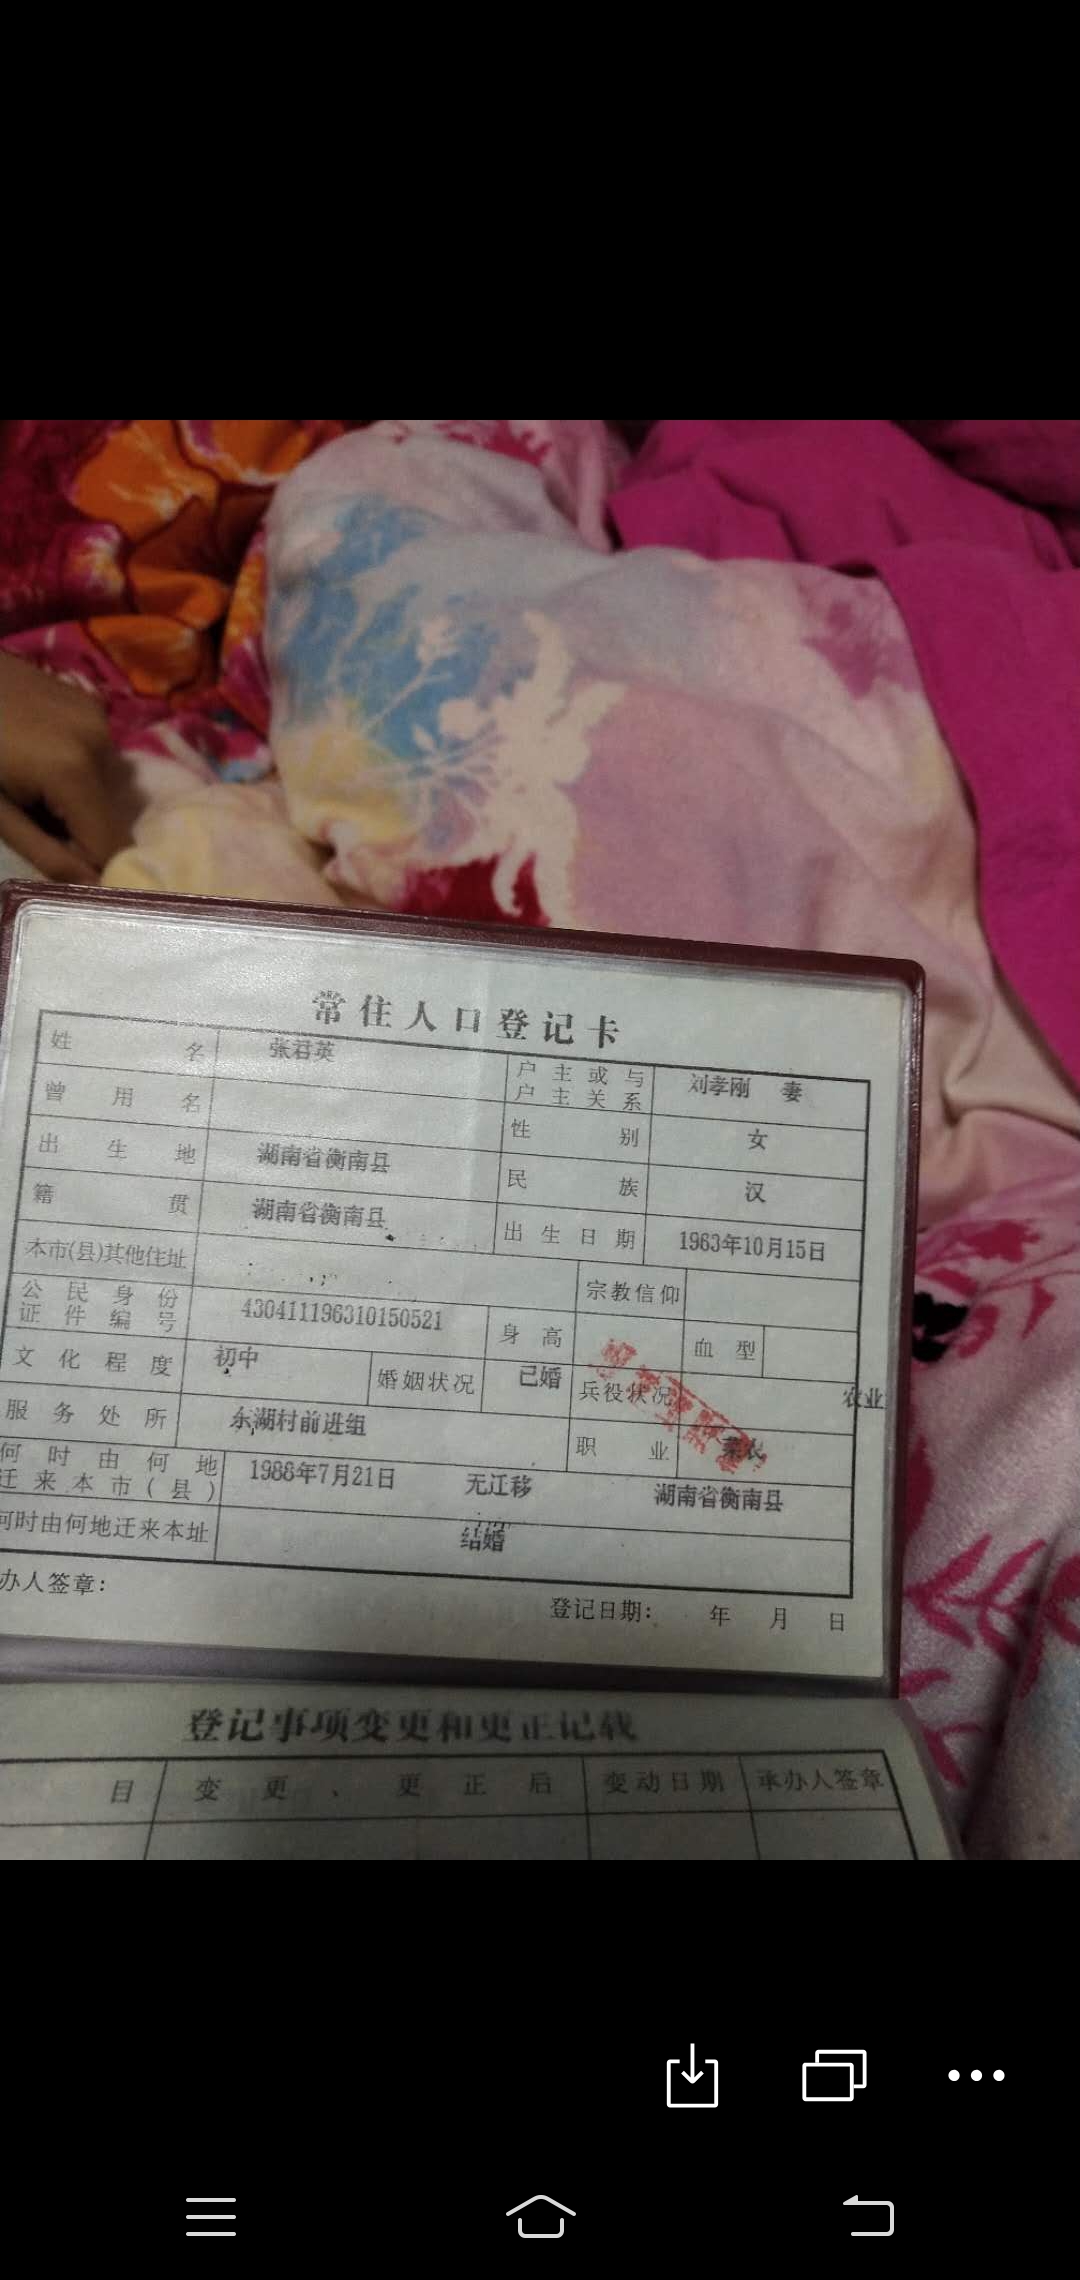 常住人口登记卡
姓名 张君英 户主或与户主关系 刘孝刚 妻
曾用名 性别 女
出生地 湖南省衡南县 民族 汉
籍贯 湖南省衡南县 出生日期 1963年10月15日
本市(县)其他住址 宗教信仰
公民身份证件编号 430411196310150521 身高 血型
文化程度 初中 婚姻状况 已婚 兵役状况 农业
服务处所 东湖村前进组 职业 菜农
何时由何地迁来本市(县) 1988年7月21日 无迁移 湖南省衡南县
何时由何地迁来本址 结婚
办人签章: 登记日期: 年 月 日
登记事项变更和更正记载
目 变更、更正后 变动日期 承办人签章